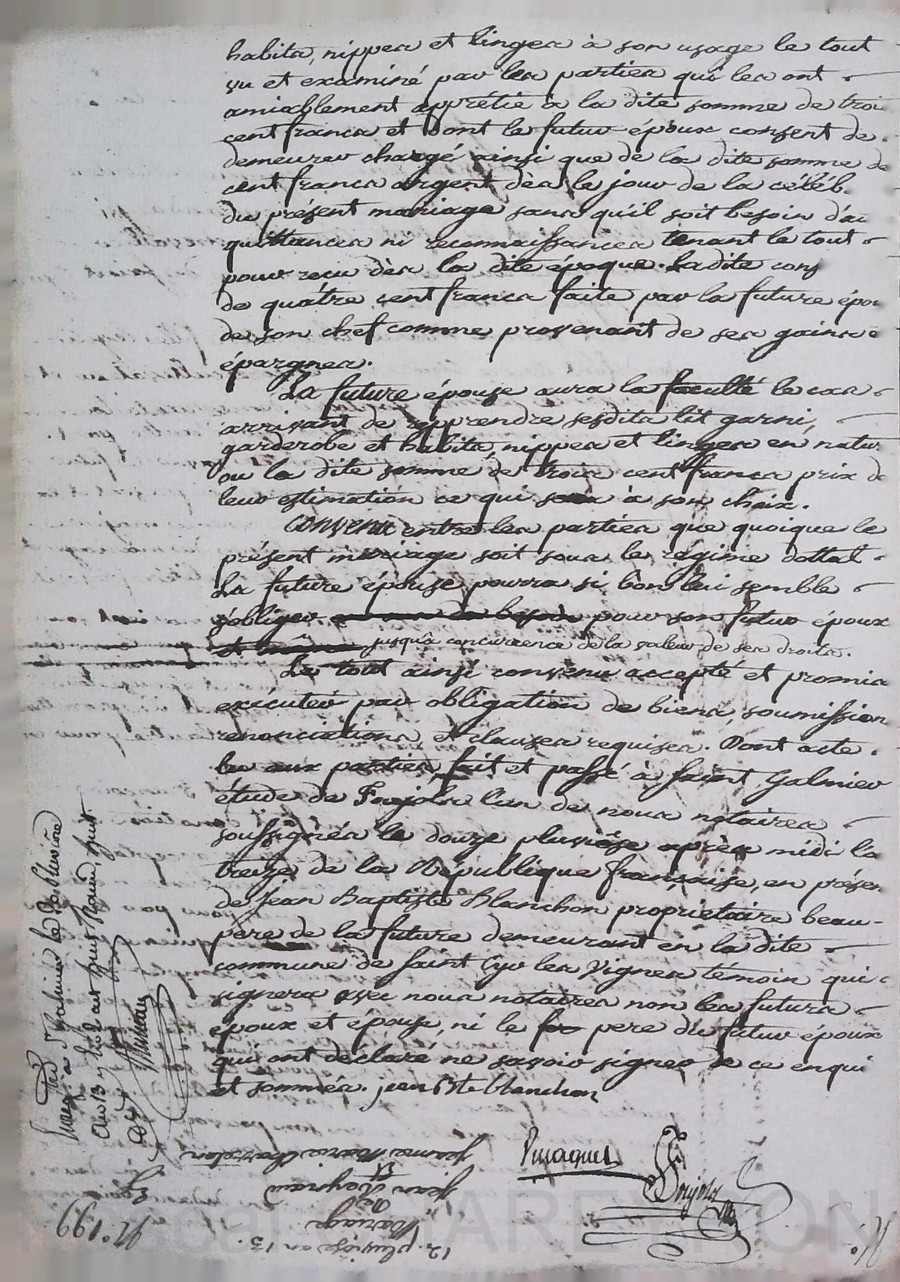 habits, nippes et linges à son usage le tout
vu et examiné par les parties qui les ont
amiablement apprétié a la dite somme de troi
cent francs et dont le futur époux consent de
demeurer chargé ainsi que de la dite somme de
cent francs argent dès le jour de la céléb.
du présent mariage sans qu'il soit besoin d'ac
quittances ni reconnaissances tenant le tout
pour recu dès la dite époque. Ladite cons
de quatre cent francs faite par la future épou
de son chef comme provenant de ses gains e
épargnes.
La future épouse aura la faculté le cas
arrivant de repprendre sesdits lit garni,
garderobe et habits, nippes et linges en natur
ou la dite somme de trois cent francs prix de
leur estimation ce qui sera à son choix.
Convenu entre les parties que quoique le
présent mariage soit sous le régime dottal
La future épouse pourra si bon lui semble
s'obliger pour son futur époux
jusqu'a concurrence de la valeur de ses droits.
Le tout ainsi convenu accepté et promis
exécuter par obligation de biens, soumission
renonciations, et clauses requises. Dont acte
lu aux parties, fait et passé à Saint Galmier
étude de Foujols l'un de nous notaires
soussignés le douze pluviose après midi l'a
treize de la République française, en présen
de Jean Baptiste Blanchon propriétaire beau-
pere de la future demeurant en la dite
commune de Saint Cyr les Vignes temoin qui
signera avec nous notaires non les futurs
époux et épouse, ni le pere du futur époux
qui ont déclaré ne savoir signer de ce enqui
et sommés. jean Bte blanchon
St Galmier le
an 13
12. pluviose an 13.
Mariage
de
Jean
Et
Jeanne Marie
N°. 199